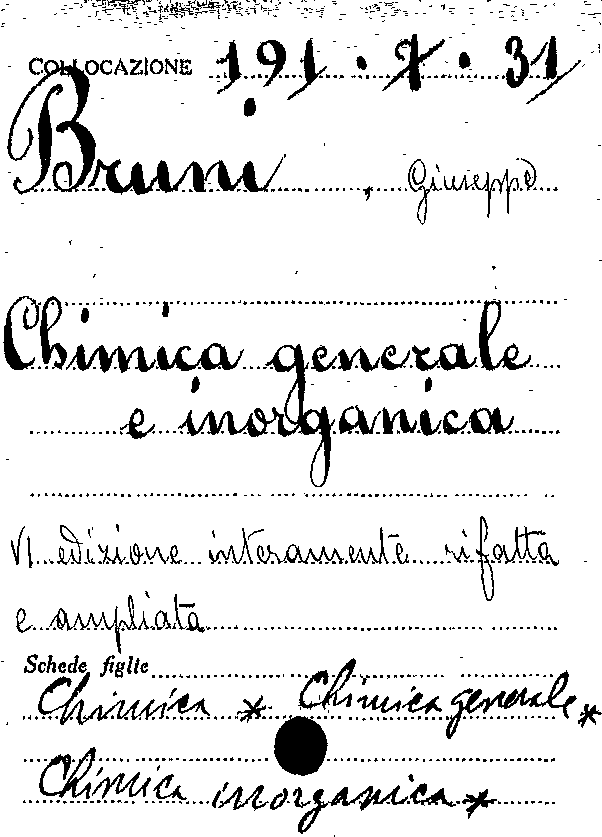 COLLOCAZIONE 191.7.31
Bruni, Giuseppe
Chimica generale
e inorganica
VI edizione interamente rifatta
e ampliata
Schede figlie
Chimica * Chimica generale *
Chimica inorganica *